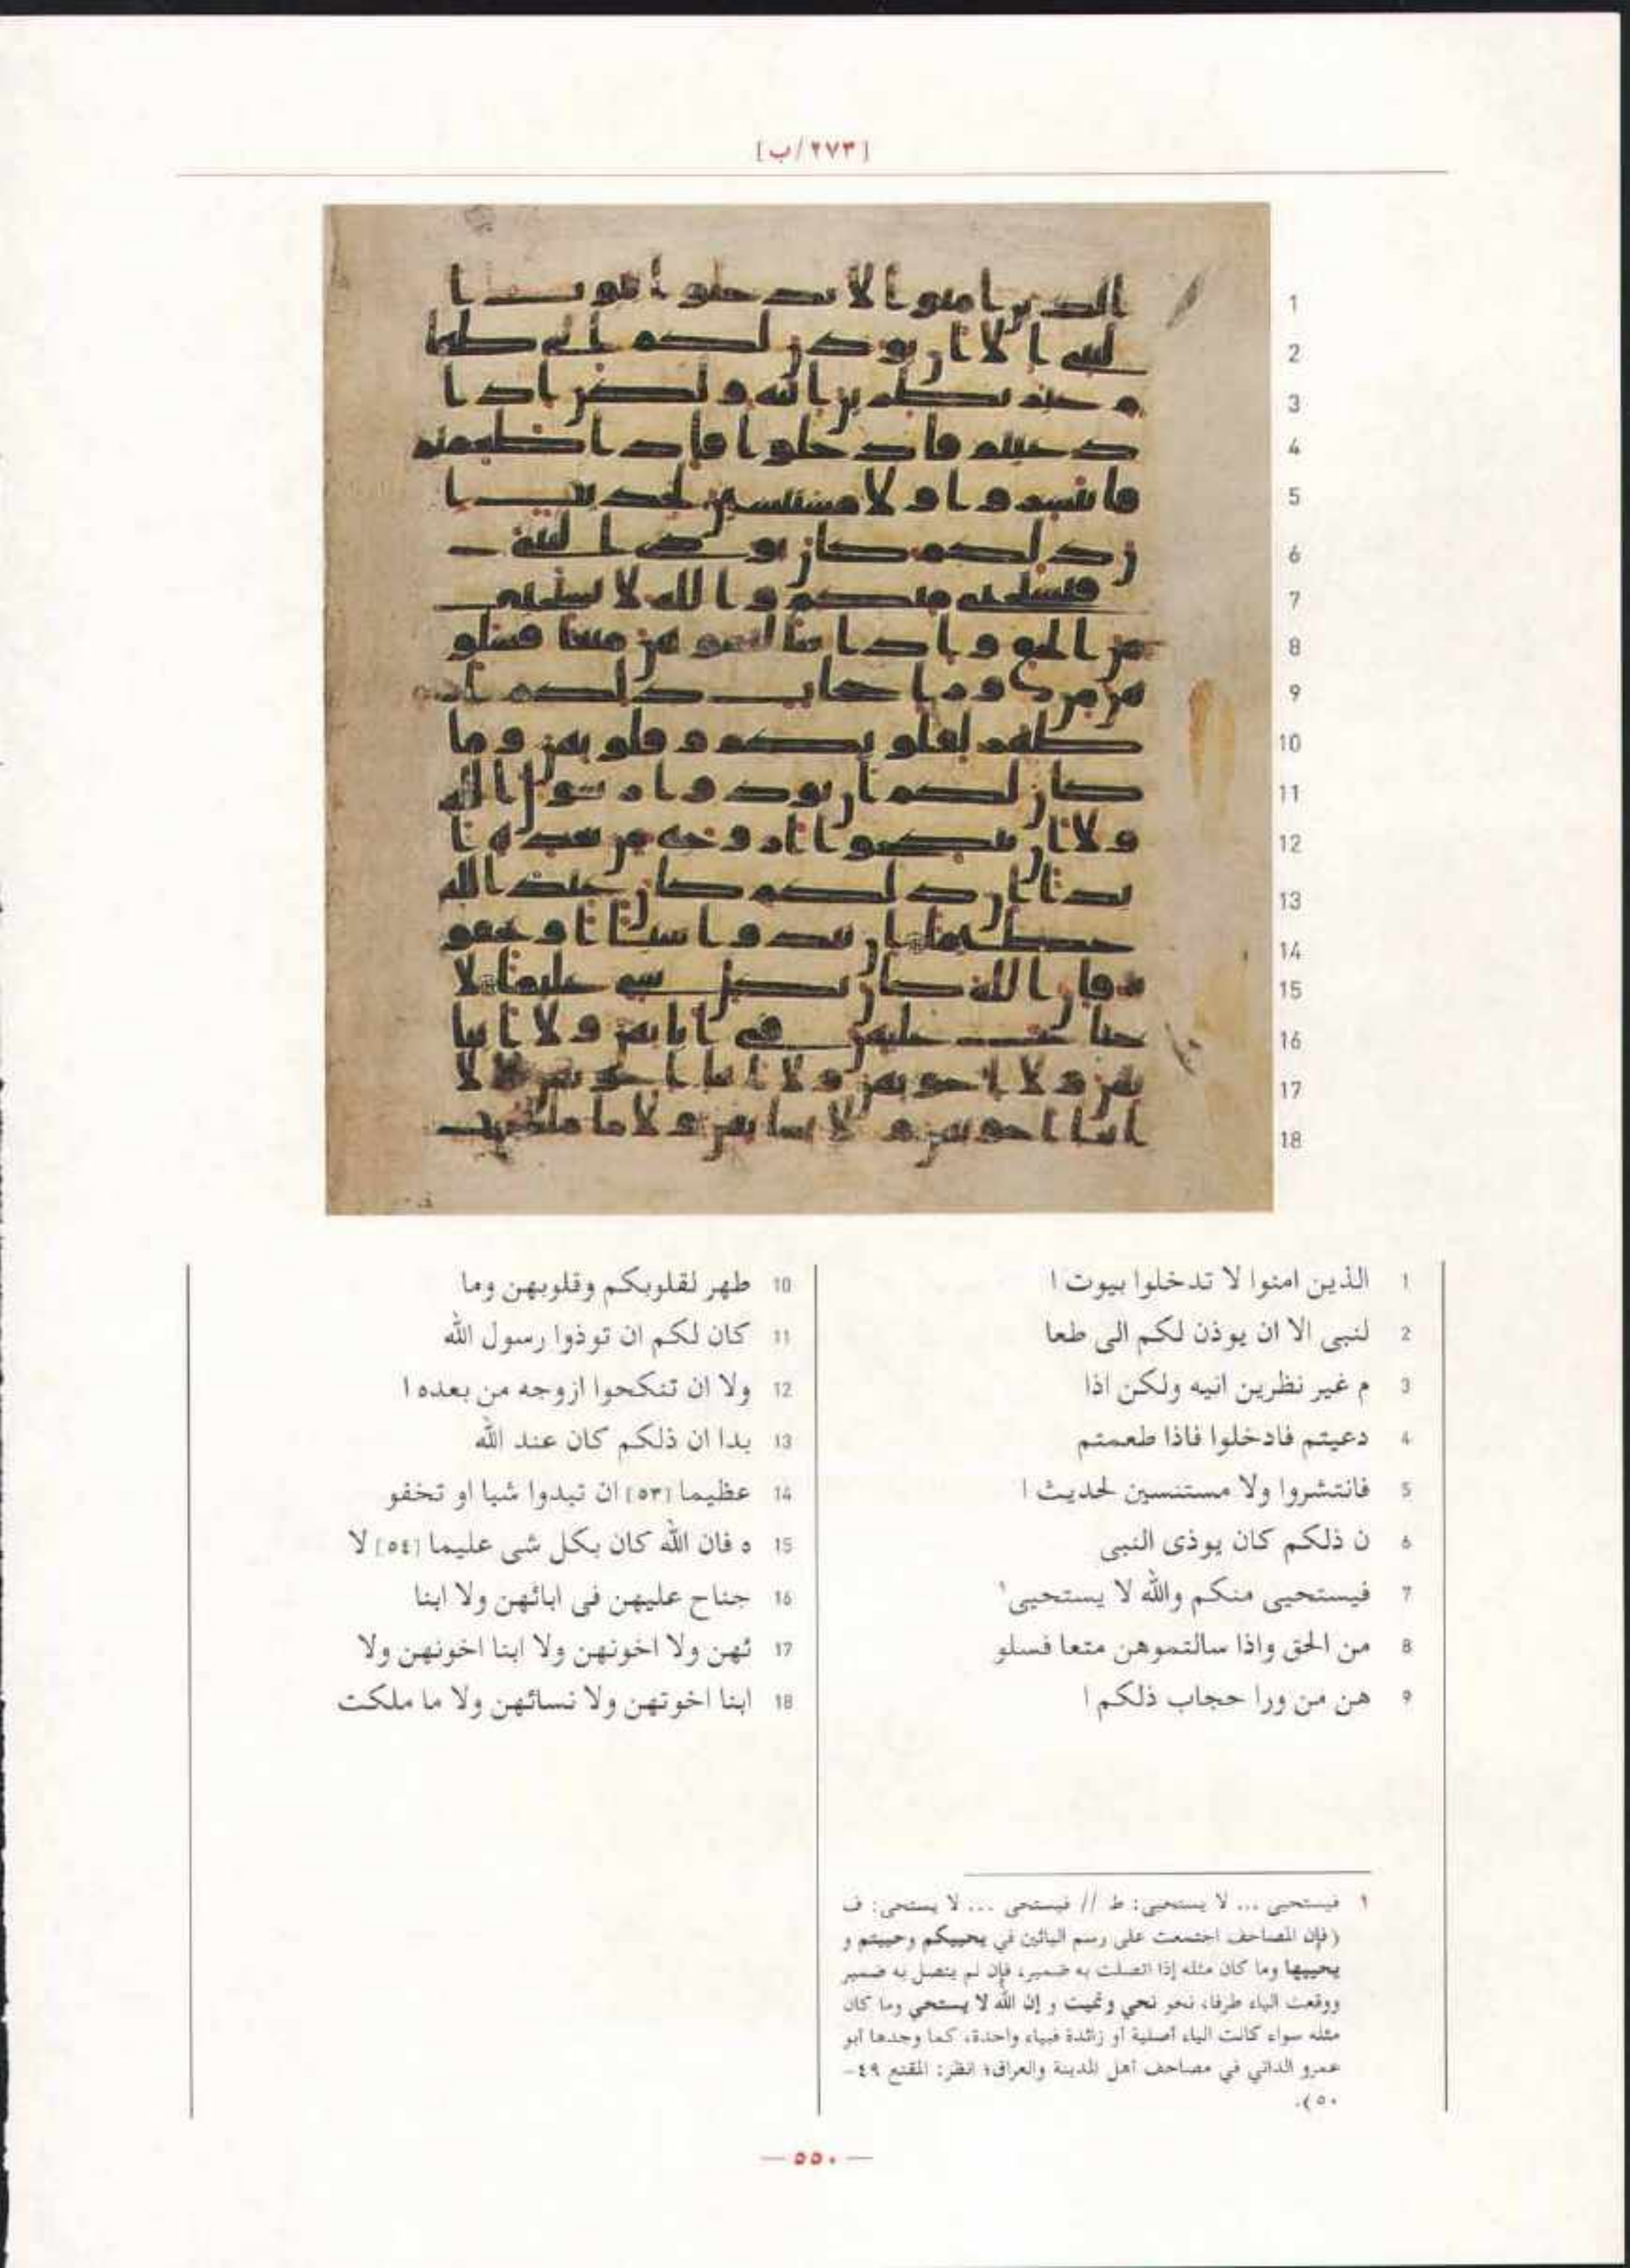 [٢٧٣/ب]
1 الذين امنوا لا تدخلوا بيوت ا
2 لنبى الا ان يوذن لكم الى طعا
3 م غير نظرين انيه ولكن اذا
4 دعيتم فادخلوا فاذا طعمتم
5 فانتشروا ولا مستنسين لحديث ا
6 ن ذلكم كان يوذى النبى
7 فيستحيى منكم والله لا يستحيى١
8 من الحق واذا سالتموهن متعا فسلو
9 هن من ورا حجاب ذلكم ا
10 طهر لقلوبكم وقلوبهن وما
11 كان لكم ان توذوا رسول الله
12 ولا ان تنكحوا ازوجه من بعده ا
13 بدا ان ذلكم كان عند الله
14 عظيما [٥٣] ان تبدوا شيا او تخفو
15 ه فان الله كان بكل شى عليما [٥٤] لا
16 جناح عليهن فى ابائهن ولا ابنا
17 ئهن ولا اخونهن ولا ابنا اخونهن ولا
18 ابنا اخوتهن ولا نسائهن ولا ما ملكت
١ فيستحيى ... لا يستحيى: ط // فيستحى ... لا يستحى: ف
(فإن المصاحف اجتمعت على رسم اليائين في يحييكم وحييتم و
يحييها وما كان مثله إذا اتصلت به ضمير، فإن لم يتصل به ضمير
ووقعت الياء طرفا، نحو نحي ونميت و إن الله لا يستحي وما كان
مثله سواء كانت الياء أصلية أو زائدة فبياء واحدة، كما وجدها أبو
عمرو الداني في مصاحف أهل المدينة والعراق؛ انظر: المقنع ٤٩-
٥٠).
— ٥٥٠ —